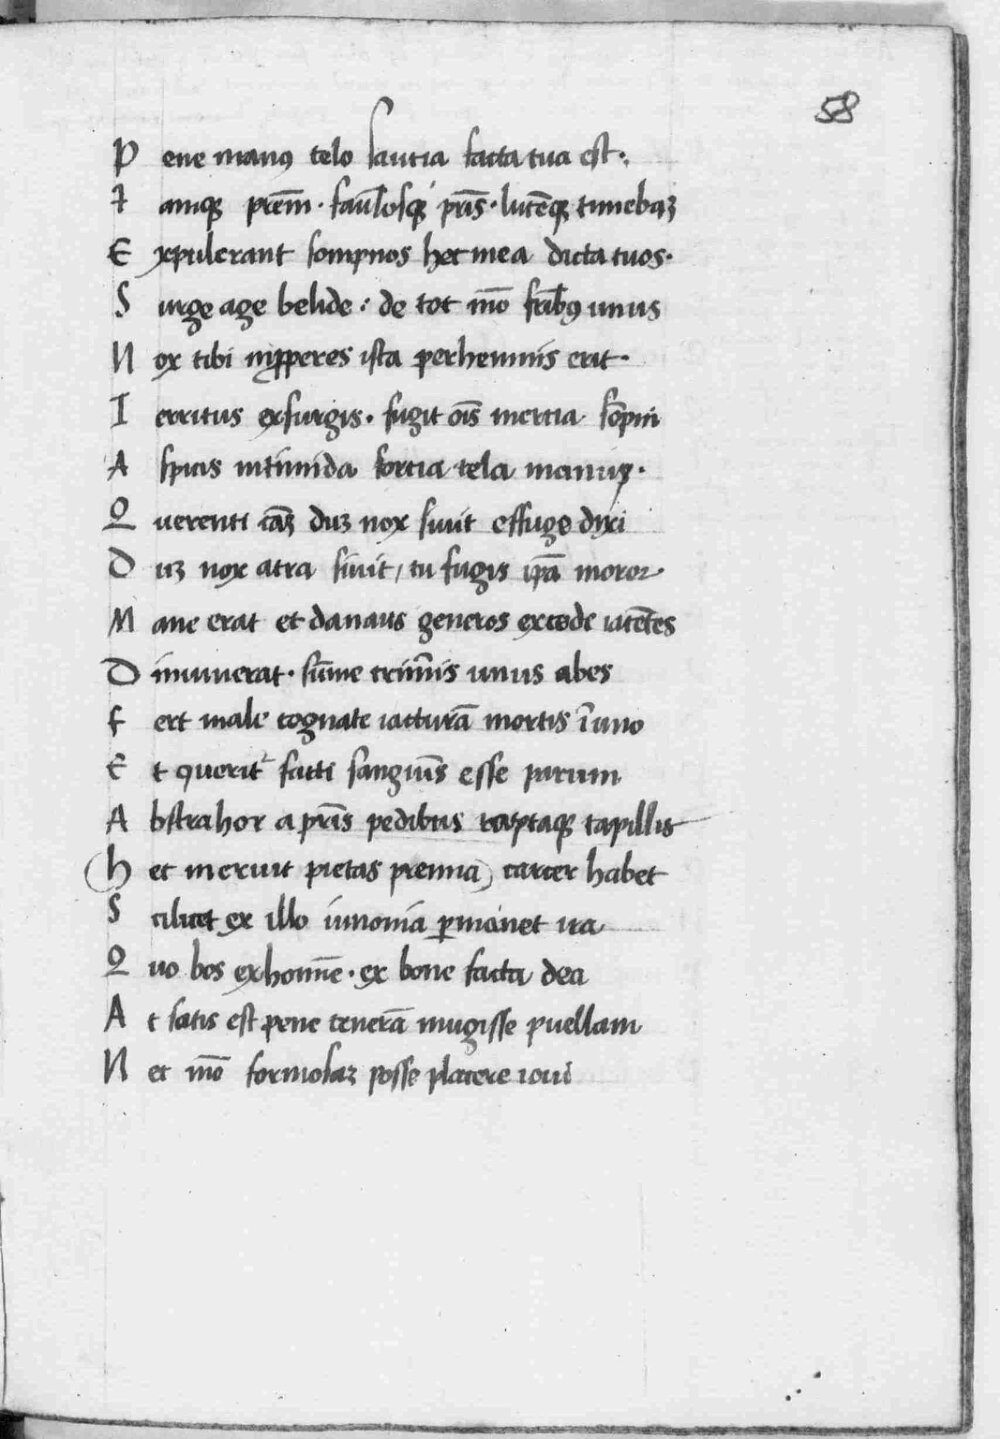 58
P ene manꝰ telo saucia facta tua est.
I amque prēm. famĺosque pr̄is. lucēque timebaꝫ
E xpulerant sompnos hec mea dicta tuos.
S urge age belide: de tot mō frībꝰ unus
N ox tibi nipperes ista perhennis erit.
I erritus exsurgis. fugit oīs inertia sōpni
A spicis intimida fortia tela manu.
Q uerenti cāꝫ duꝫ nox sinit effuge dixi
D uꝫ nox atra sinit, tu fugis ip̄a moror.
M ane erat et danaus generos ex cede iacētes
D inumerat. sūme crimīis unus abes
F ert male cognate iacturā mortis ī uno
E t queritr facti sanguīs esse parum
A bstrahor a pr̄is pedibus raptaque capillis
h ec meruit pietas premia carcer habet
S cilicet ex illo iunonia ꝑmanet ira
Q uo bos ex homīe. ex boue facta dea
A t satis est pene tenerā mugisse puellam
N ec mō formosaꝫ posse placere ioui